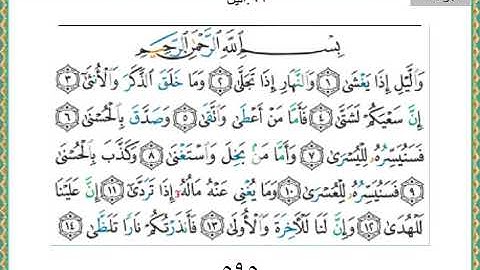 بِسْمِ اللَّهِ الرَّحْمَنِ الرَّحِيمِ
وَالَّيْلِ إِذَا يَغْشَىٰ ١ وَالنَّهَارِ إِذَا تَجَلَّىٰ ٢ وَمَا خَلَقَ الذَّكَرَ وَالْأُنثَىٰ ٣
إِنَّ سَعْيَكُمْ لَشَتَّىٰ ٤ فَأَمَّا مَنْ أَعْطَىٰ وَاتَّقَىٰ ٥ وَصَدَّقَ بِالْحُسْنَىٰ ٦
فَسَنُيَسِّرُهُ لِلْيُسْرَىٰ ٧ وَأَمَّا مَنْ بَخِلَ وَاسْتَغْنَىٰ ٨ وَكَذَّبَ بِالْحُسْنَىٰ
٩ فَسَنُيَسِّرُهُ لِلْعُسْرَىٰ ١٠ وَمَا يُغْنِي عَنْهُ مَالُهُ إِذَا تَرَدَّىٰ ١١ إِنَّ عَلَيْنَا
لَلْهُدَىٰ ١٢ وَإِنَّ لَنَا لَلْآخِرَةَ وَالْأُولَىٰ ١٣ فَأَنذَرْتُكُمْ نَارًا تَلَظَّىٰ ١٤